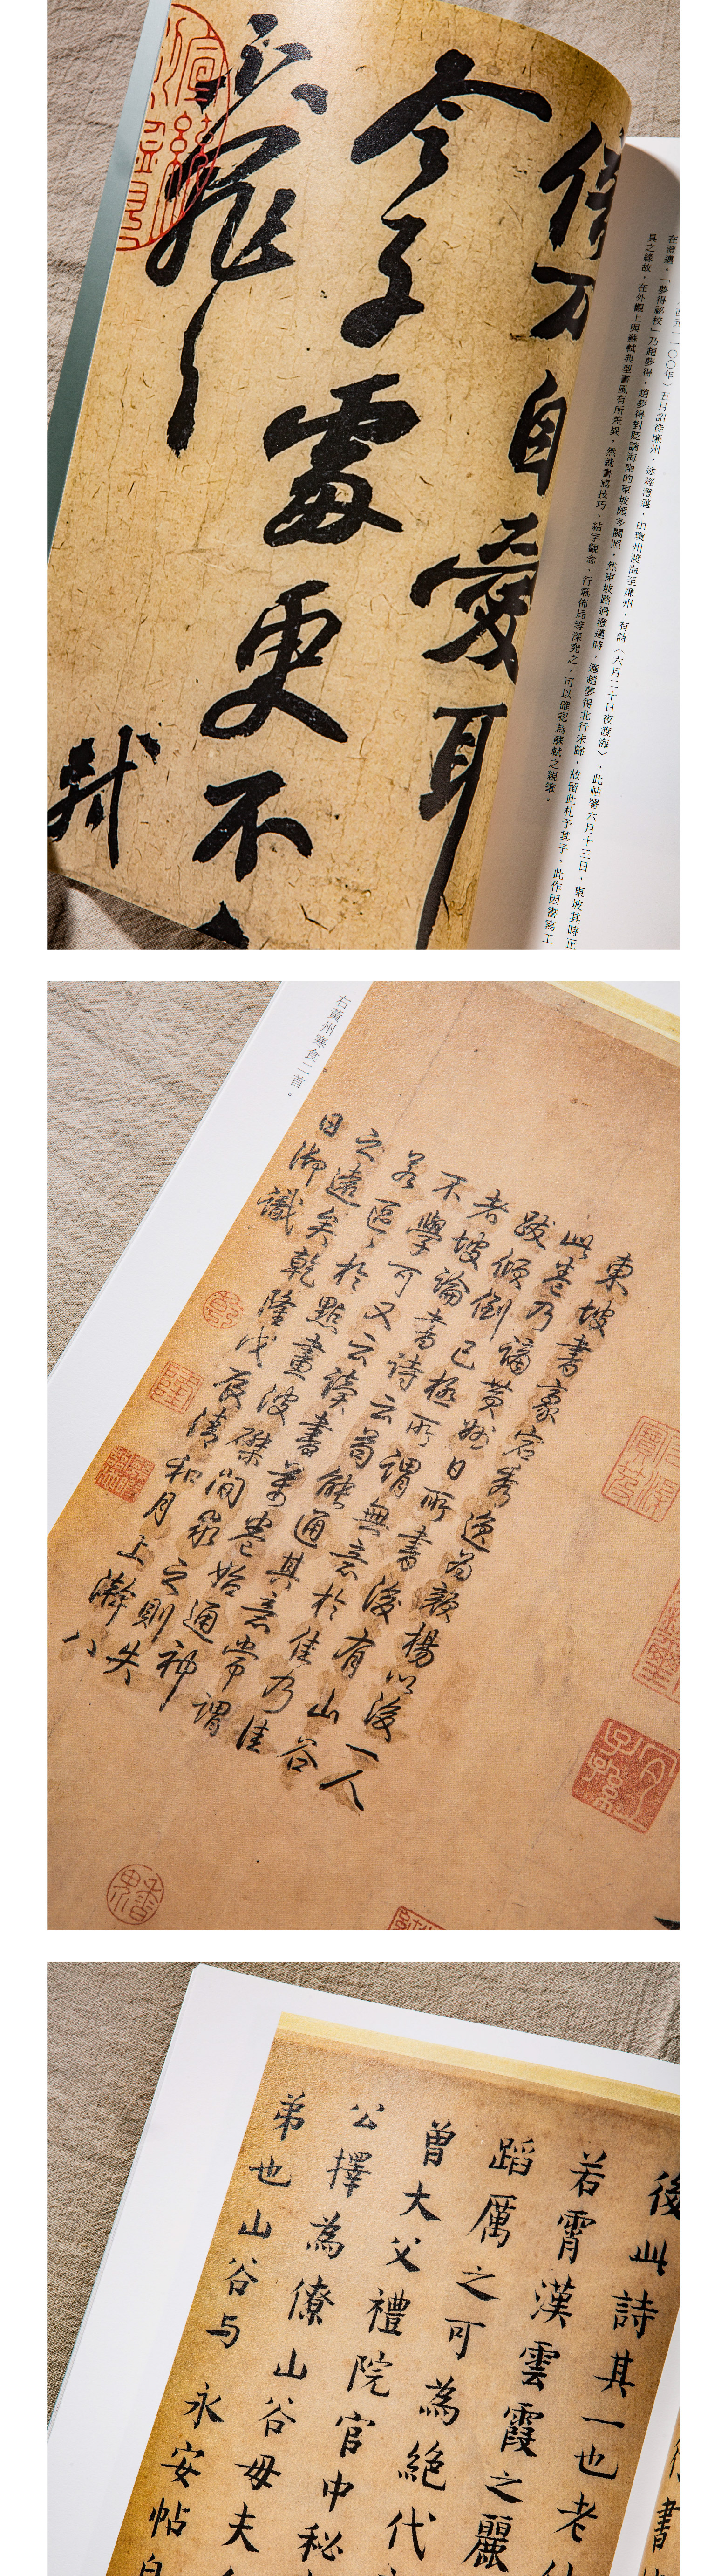 西元一一〇〇年）五月詔徙廉州，途經澄邁，由瓊州渡海至廉州，有詩〈六月二十日夜渡海〉。此帖署六月十三日，東坡其時正
在澄邁。「夢得祕校」乃趙夢得，趙夢得對貶謫海南的東坡頗多關照，然東坡路過澄邁時，適趙夢得北行未歸，故留此札予其子。此作因書寫工
具之緣故，在外觀上與蘇軾典型書風有所差異，然就書寫技巧、結字觀念、行氣佈局等深究之，可以確認為蘇軾之親筆。
倍万自愛耳
令子處更不
不罪
軾
東坡書豪宕秀逸為顏楊以後一人
此卷乃謫黃州日所書後有山谷
跋傾倒已極所謂無意於佳乃佳
者坡論書詩云苟能通其意常謂
不學可又云讀書萬卷始通神
若區〻於點畫波磔間求之則失
之遠矣乾隆戊辰清和月上澣八
日御識
右黃州寒食二首。
後此詩其一也老
若霄漢雲霞之麗
蹈厲之可為絕代
曾大父禮院官中秘
公擇為僚山谷母夫
弟也山谷与永安帖自